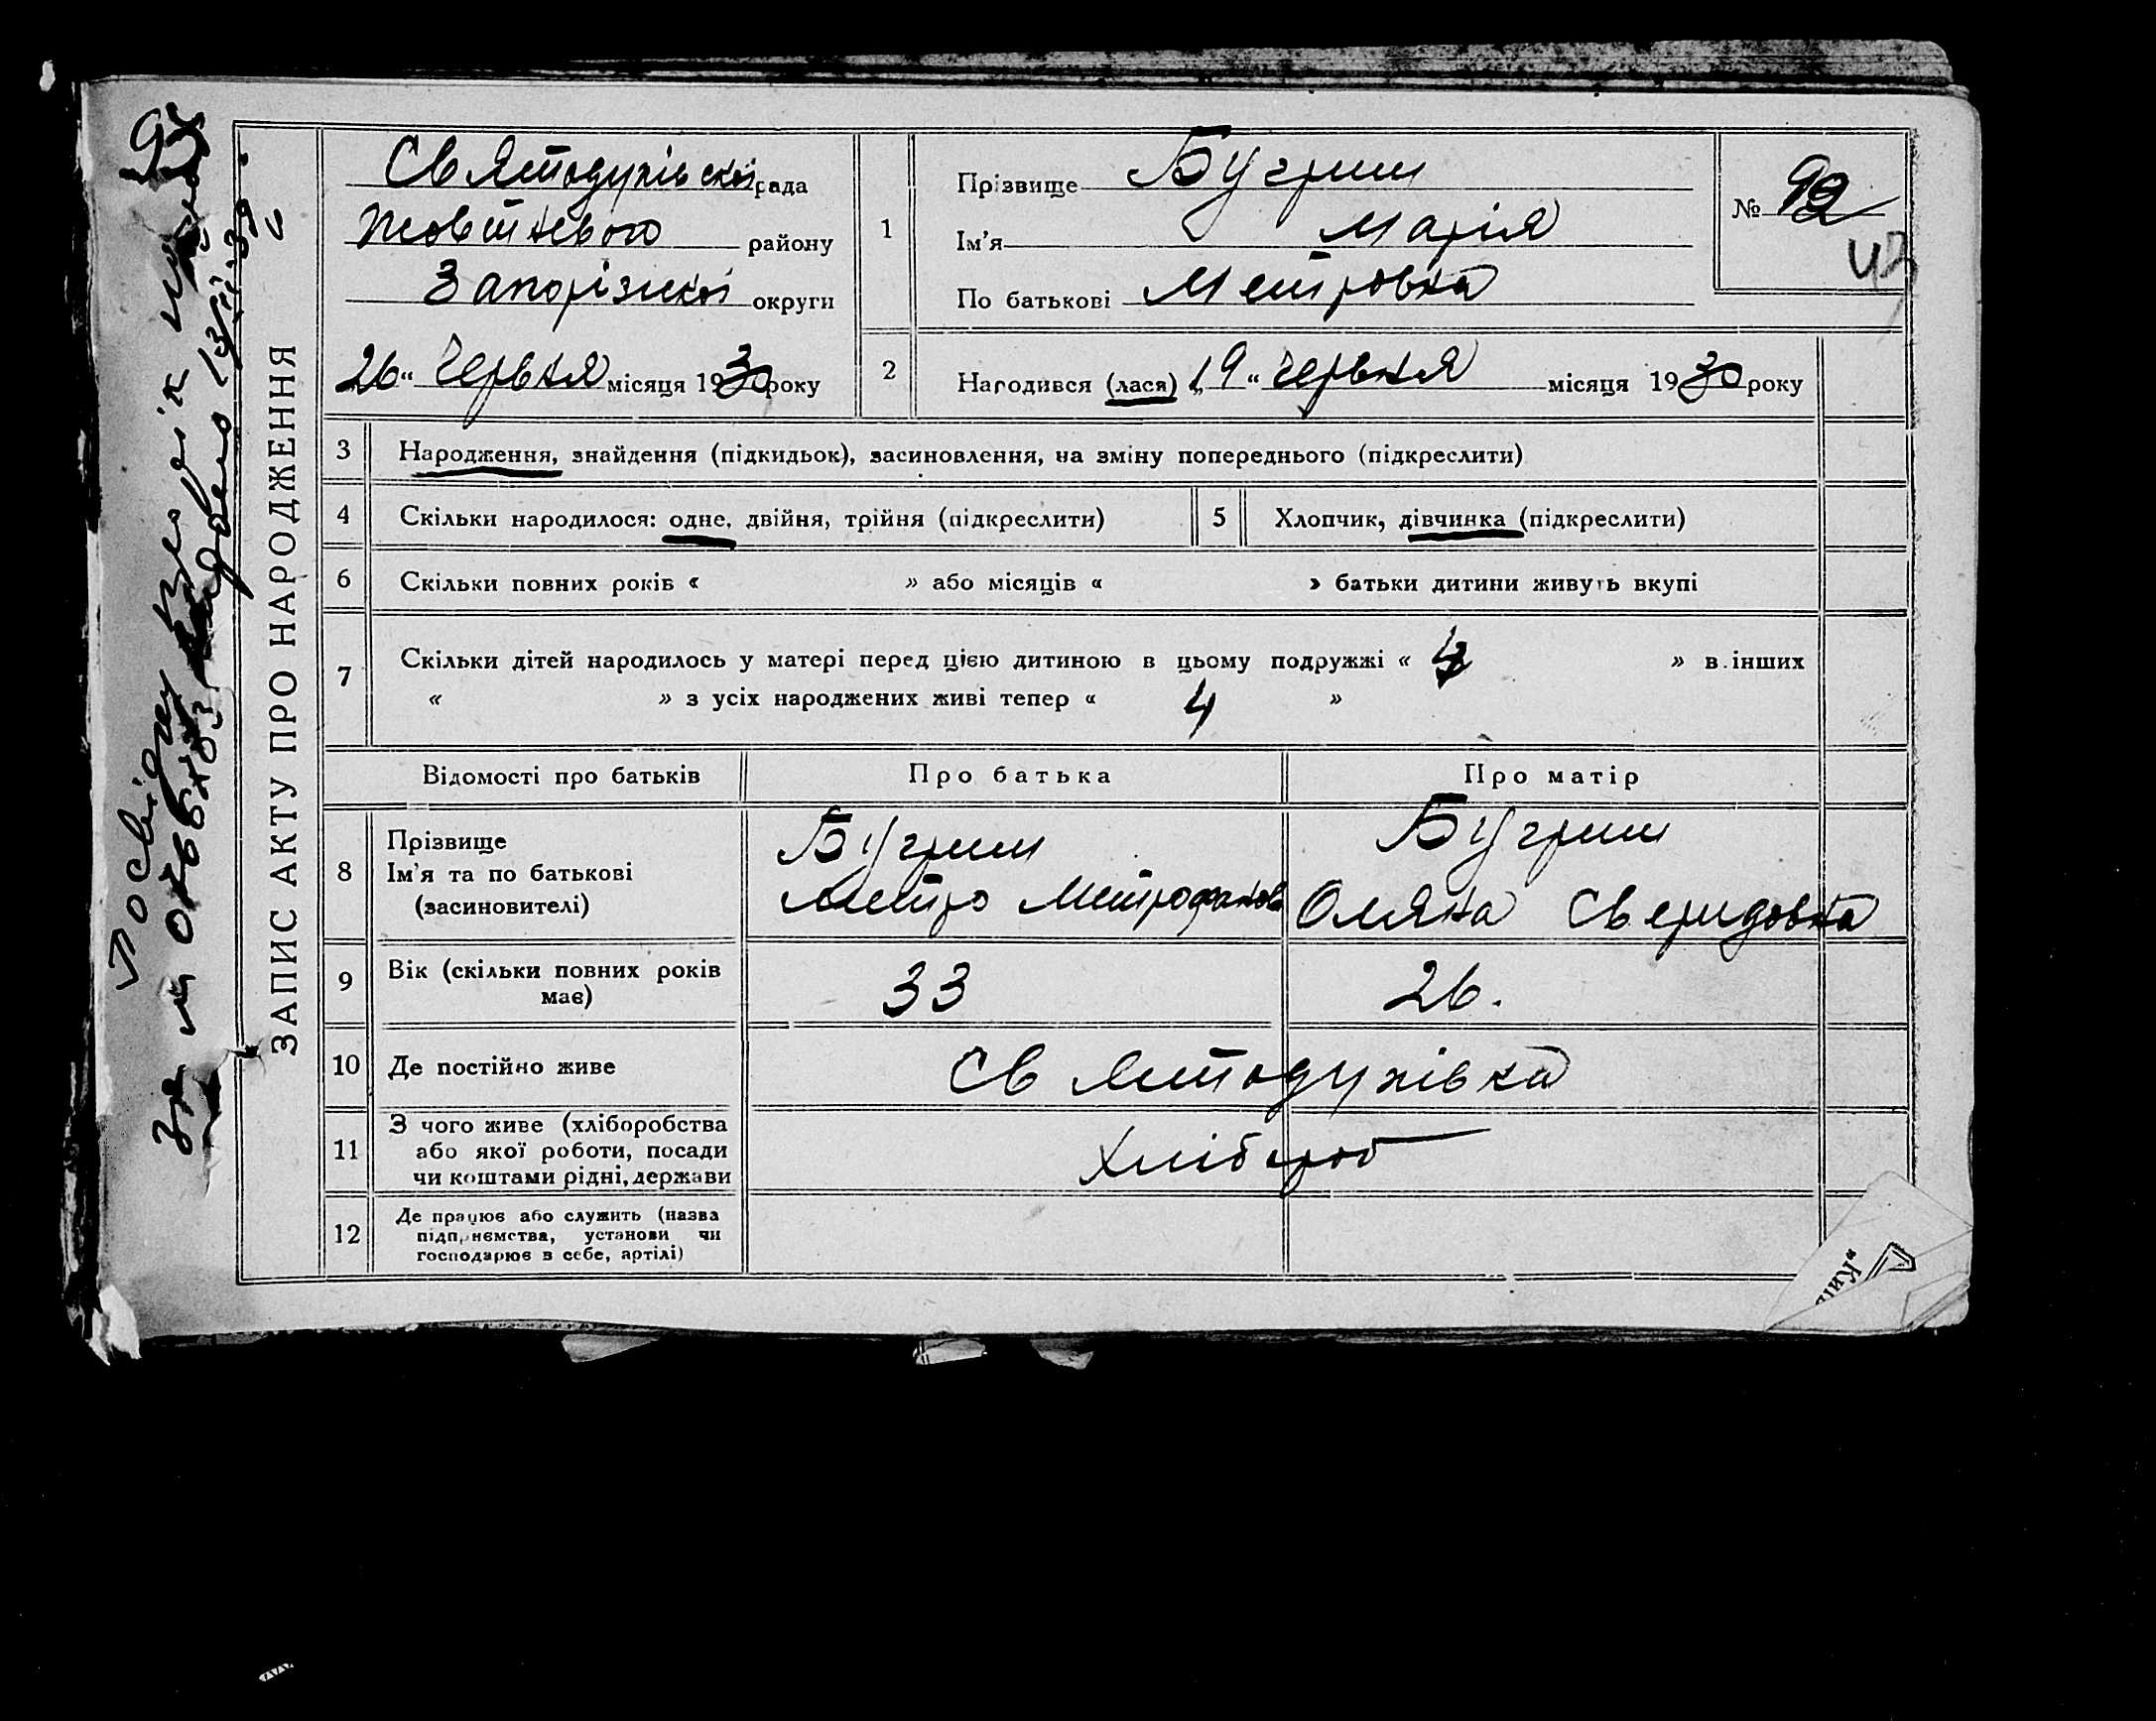 ЗАПИС АКТУ ПРО НАРОДЖЕННЯ
Святодухівскої рада
Жовтневого району
Запоріжкої округи
26 " Червня місяця 1930 року
1
Прізвище Бугрим
Ім'я Марія
По батькові Метровна
№ 92
43
2
Народився (лася) „19 " Червня місяця 1930 року
3 Народження, знайдення (підкидьок), засиновлення, на зміну попереднього (підкреслити)
4 Скільки народилося: одне, двійня, трійня (підкреслити) 5 Хлопчик, дівчинка (підкреслити)
6 Скільки повних років « » або місяців « » батьки дитини живуть вкупі
7 Скільки дітей народилось у матері перед цією дитиною в цьому подружжі « » в інших
« » з усіх народжених живі тепер « 4 »
Відомості про батьків Про батька Про матір
8 Прізвище
Ім'я та по батькові
(засиновителі)
Бугрим
Метро Метрофанов
Бугрим
Оляна Свєридовна
9 Вік (скільки повних років
має)
33 26.
10 Де постійно живе Святодухівка
11 З чого живе (хліборобства
або якої роботи, посади
чи коштами рідні, держави
Хлібороб
12 Де працює або служить (назва
підприємства, установи чи
господарює в себе, артілі)